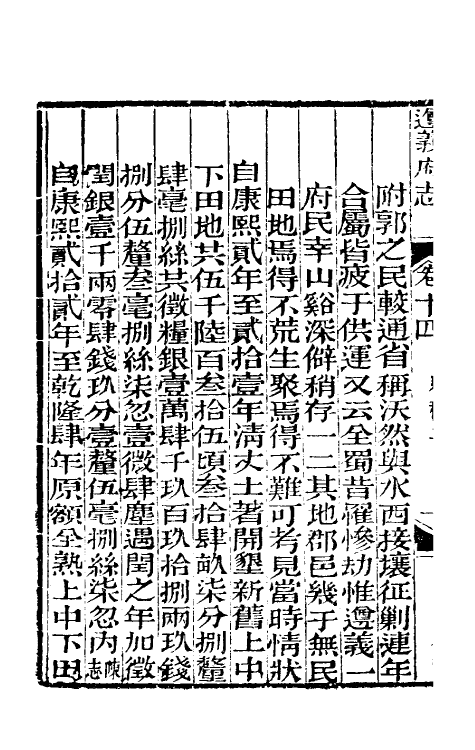 遵義府志
卷十四
附郭之民較通省稱沃然與水西接壤征剿連年
合屬皆疲于供運又云全蜀昔罹慘劫惟遵義一
府民幸山谿深僻稍存一二其地郡邑幾于無民
田地焉得不荒生聚焉得不難可考見當時情狀
自康熙貳年至貳拾壹年清丈土著開墾新舊上中
下田地共伍千陸百叁拾伍頃叁拾肆畝柒分捌釐
肆毫捌絲共徵糧銀壹萬肆千玖百玖拾捌兩玖錢
捌分伍釐叁毫捌絲柒忽壹微肆塵遇閏之年加徵
閏銀壹千兩零肆錢玖分壹釐伍毫捌絲柒忽內陳志
自康熙貳拾貳年至乾隆肆年原額全熟上中下田